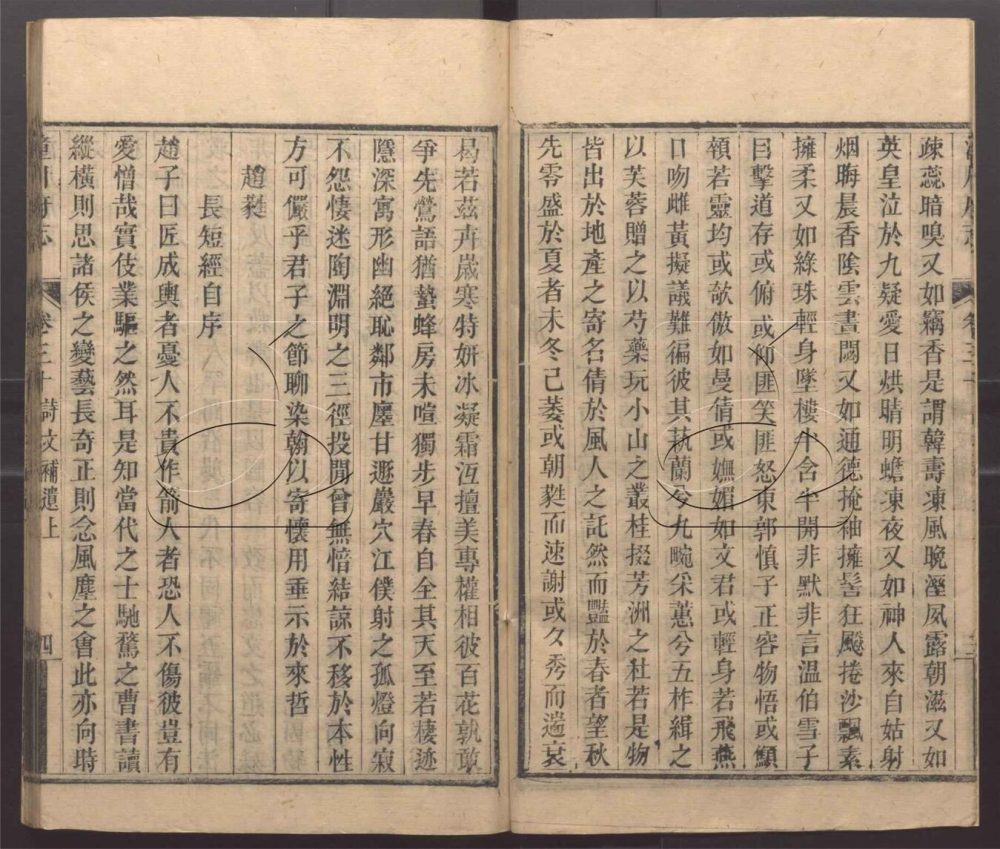 疎蕊暗嗅又如竊香是謂韓壽凍風晚溼夙露朝滋又如
英皇泣於九疑愛日烘晴明蟾凍夜又如神人來自姑射
烟晦晨香陰雲晝閟又如通德掩袖擁髻狂飈捲沙飄素
擁柔又如綠珠輕身墜樓半含半開非默非言溫伯雪子
目擊道存或俯或仰匪笑匪怒東郭慎子正容物悟或顦
顇若靈均或欹傲如曼倩或嫵媚如文君或輕身若飛燕
口吻雌黃擬議難徧彼其蓺蘭兮九畹采蕙兮五柞緝之
以芙蓉贈之以芍藥玩小山之叢桂掇芳洲之杜若是物
皆出於地產之寄名倩於風人之託然而豔於春者望秋
先零盛於夏者未冬已萎或朝蕣而速謝或夕秀而遄衰
曷若茲卉歲寒特妍冰凝霜沍擅美專權相彼百花孰敢
爭先鶯語猶蟄蜂房未喧獨步早春自全其天至若棲迹
隱深寓形幽絕恥鄰市廛甘遯巖穴江僕射之孤燈向寂
不怨悽迷陶淵明之三徑投閒曾無愔結諒不移於本性
方可儷乎君子之節聊染翰以寄懷用垂示於來哲
趙蕤
長短經自序
趙子曰匠成輿者憂人不貴作箭人者恐人不傷彼豈有
愛憎哉實伎業驅之然耳是知當代之士馳騖之曹書讀
縱橫則思諸侯之變藝長奇正則念風塵之會此亦向時
潼川府志 卷三十 詩文補遺上 四